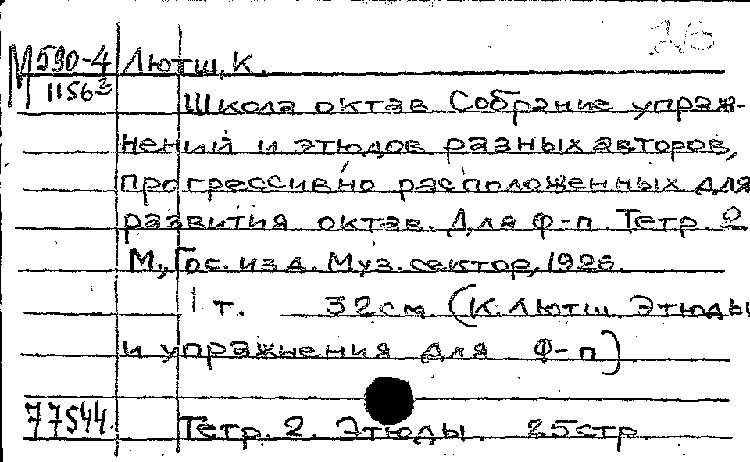 26
М 590-4 Лютш, К.
1156³
Школа октав Собрание упраж-
нений и этюдов разных авторов,
прогрессивно расположенных для
развития октав. Для ф-п. Тетр. 2
М., Гос. изд. Муз. сектор, 1926.
1 т. 32 см. (К. Лютш. Этюды
и упражнения для ф-п)
77544. Тетр. 2. Этюды. 25 стр.